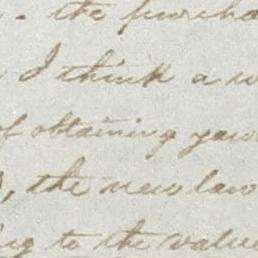 . the purcha
I think a w
of obtaining your
, the new law
ing to the value